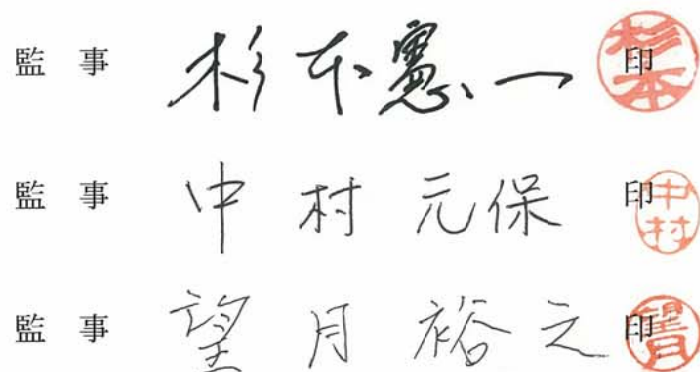 監 事 杉本憲一 印 杉本
監 事 中村元保 印 中村
監 事 望月裕之 印 望月